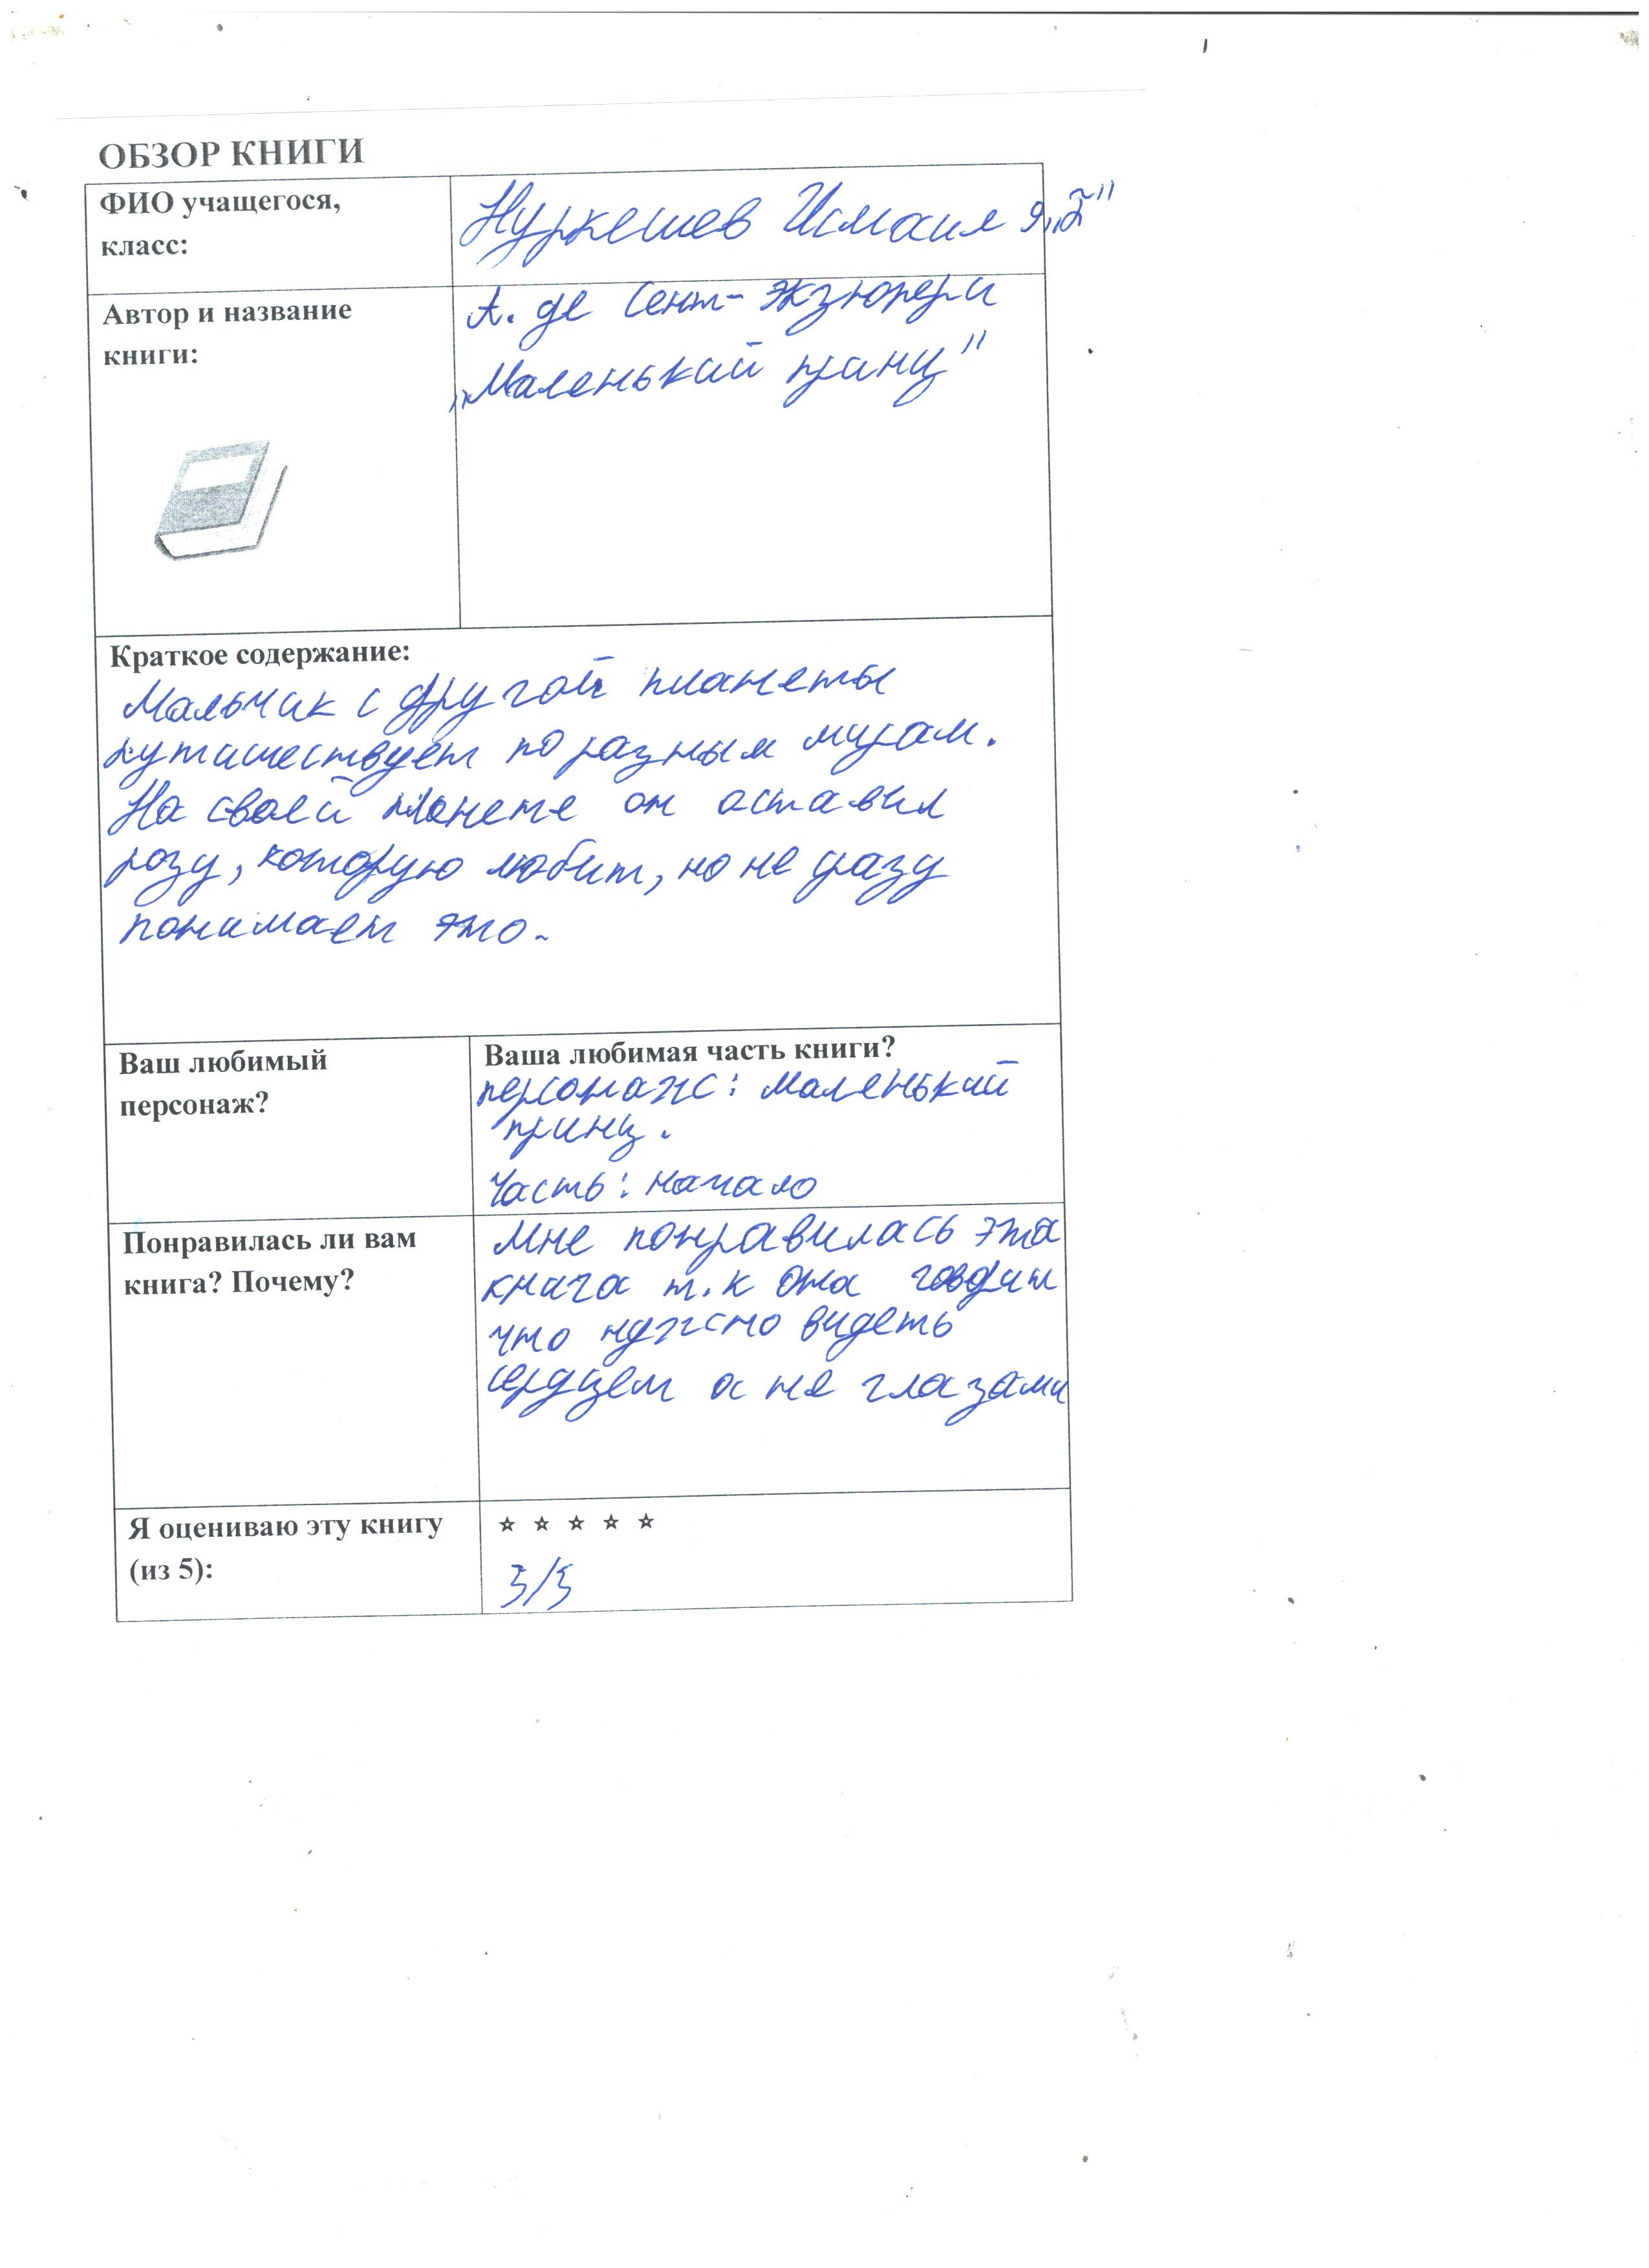 ОБЗОР КНИГИ
ФИО учащегося,
класс:
Нуркешев Исмаил 9 „Б"
Автор и название
книги:
А. де Сент-Экзюрери
„Маленький принц"
Краткое содержание:
Мальчик с другой планеты
путишествует по разным мирам.
На своей планете он оставил
розу, которую любит, но не сразу
понимает это.
Ваш любимый
персонаж?
Ваша любимая часть книги?
персонаж: маленький
принц.
Часть: начало
Понравилась ли вам
книга? Почему?
Мне понравилась эта
книга т.к она говорит
что нужно видеть
сердцем а не глазами
Я оцениваю эту книгу
(из 5):
☆ ☆ ☆ ☆ ☆
5/5